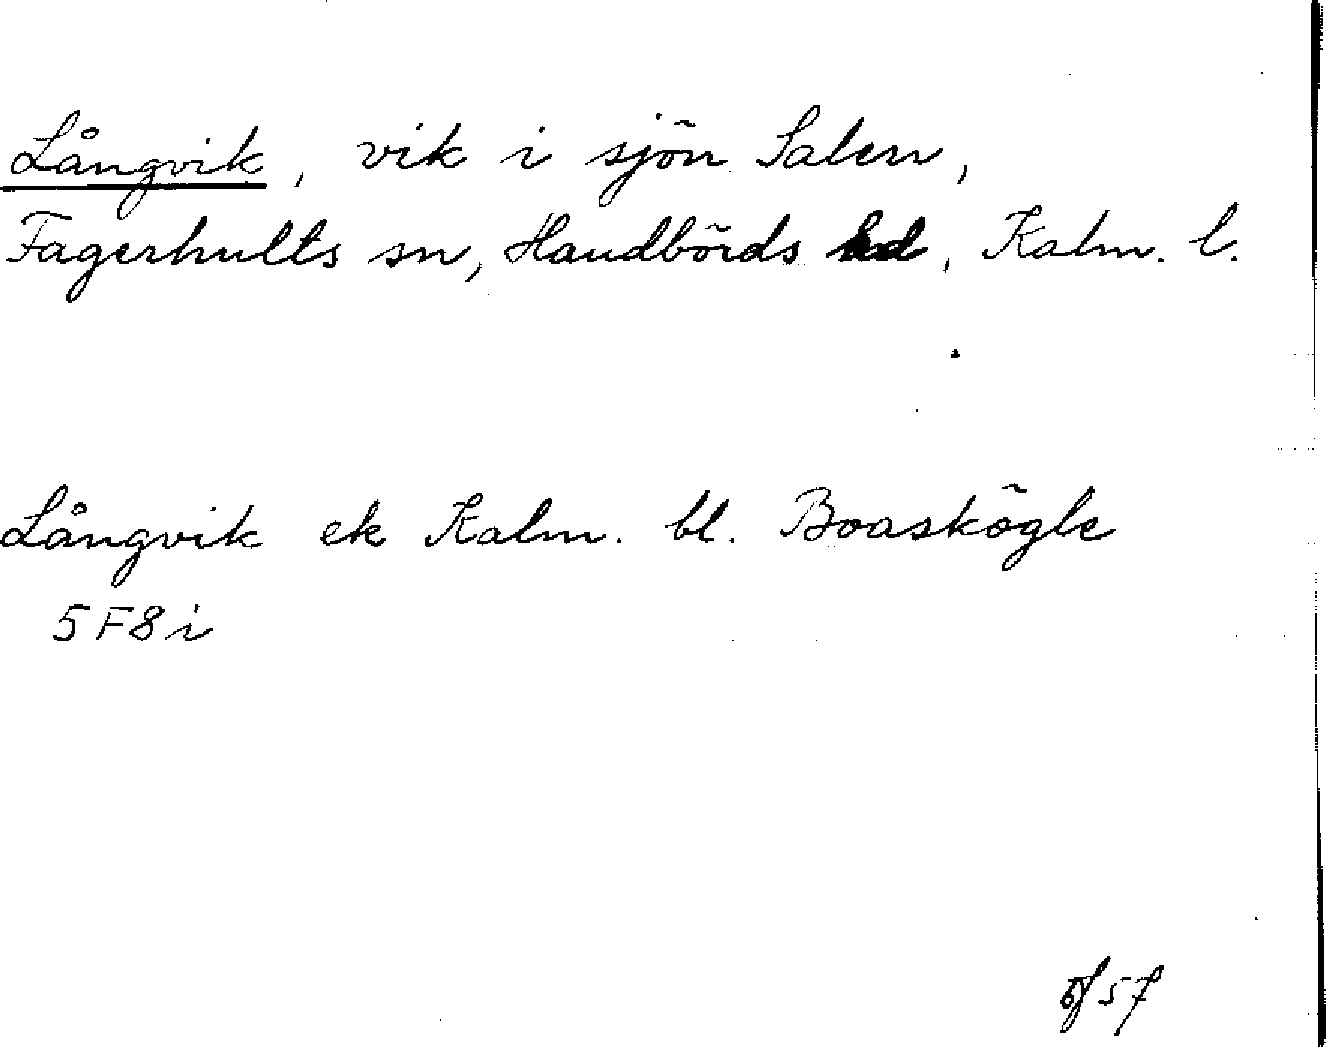 Långvik, vik i sjön Salen,
Fagerhults sn, Handbörds hd, Kalm. l.
Långvik ek Kalm. bl. Boaskögle
5F8i